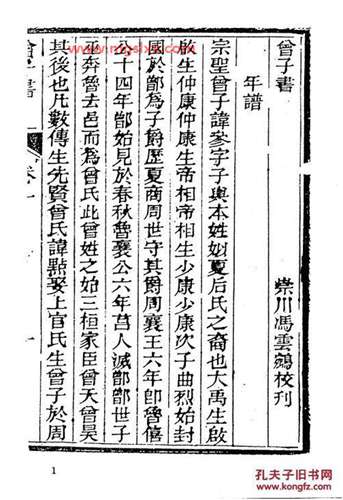 曾子書 崇川馮雲鵷校刊
年譜
宗聖曾子諱參字子輿本姓姒夏后氏之裔也大禹生啟
啟生仲康仲康生帝相帝相生少康少康次子曲烈始封
國於鄫為子爵歷夏商周世守其爵周襄王六年卽魯僖
公十四年鄫始見於春秋魯襄公六年莒人滅鄫鄫世子
巫奔魯去邑而為曾氏此曾姓之始三桓家臣曾天曾昊
其後也凡數傳生先賢曾氏諱點娶上官氏生曾子於周
卷一
1
孔夫子旧书网